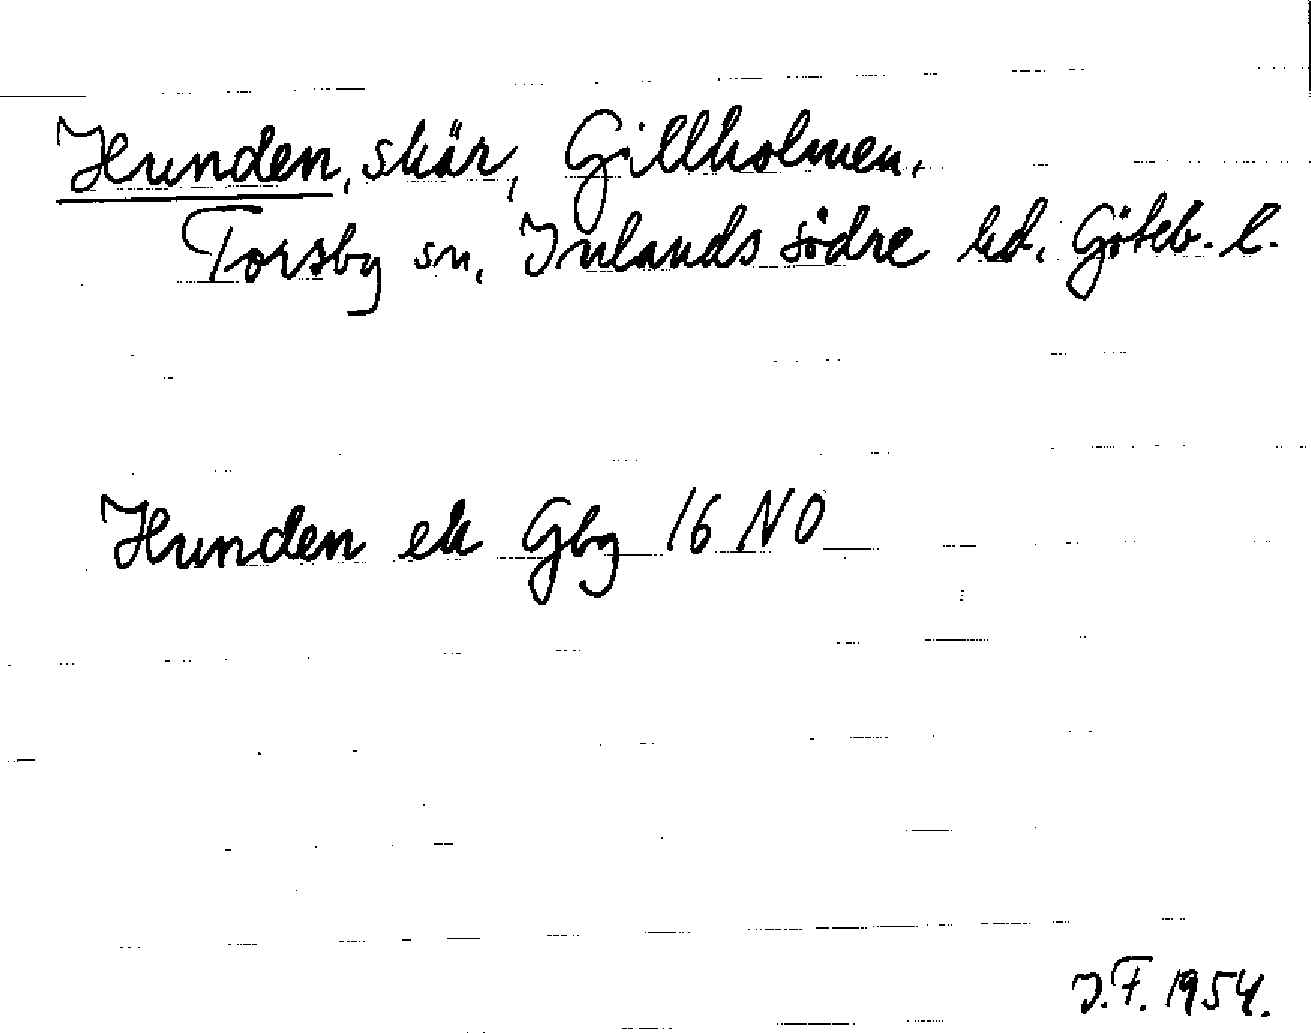 Hunden, skär, Gillholmen,
Torsby sn, Inlands södre hd. Göteb. l.
Hunden ek Gbg 16 NO
J.F. 1954.